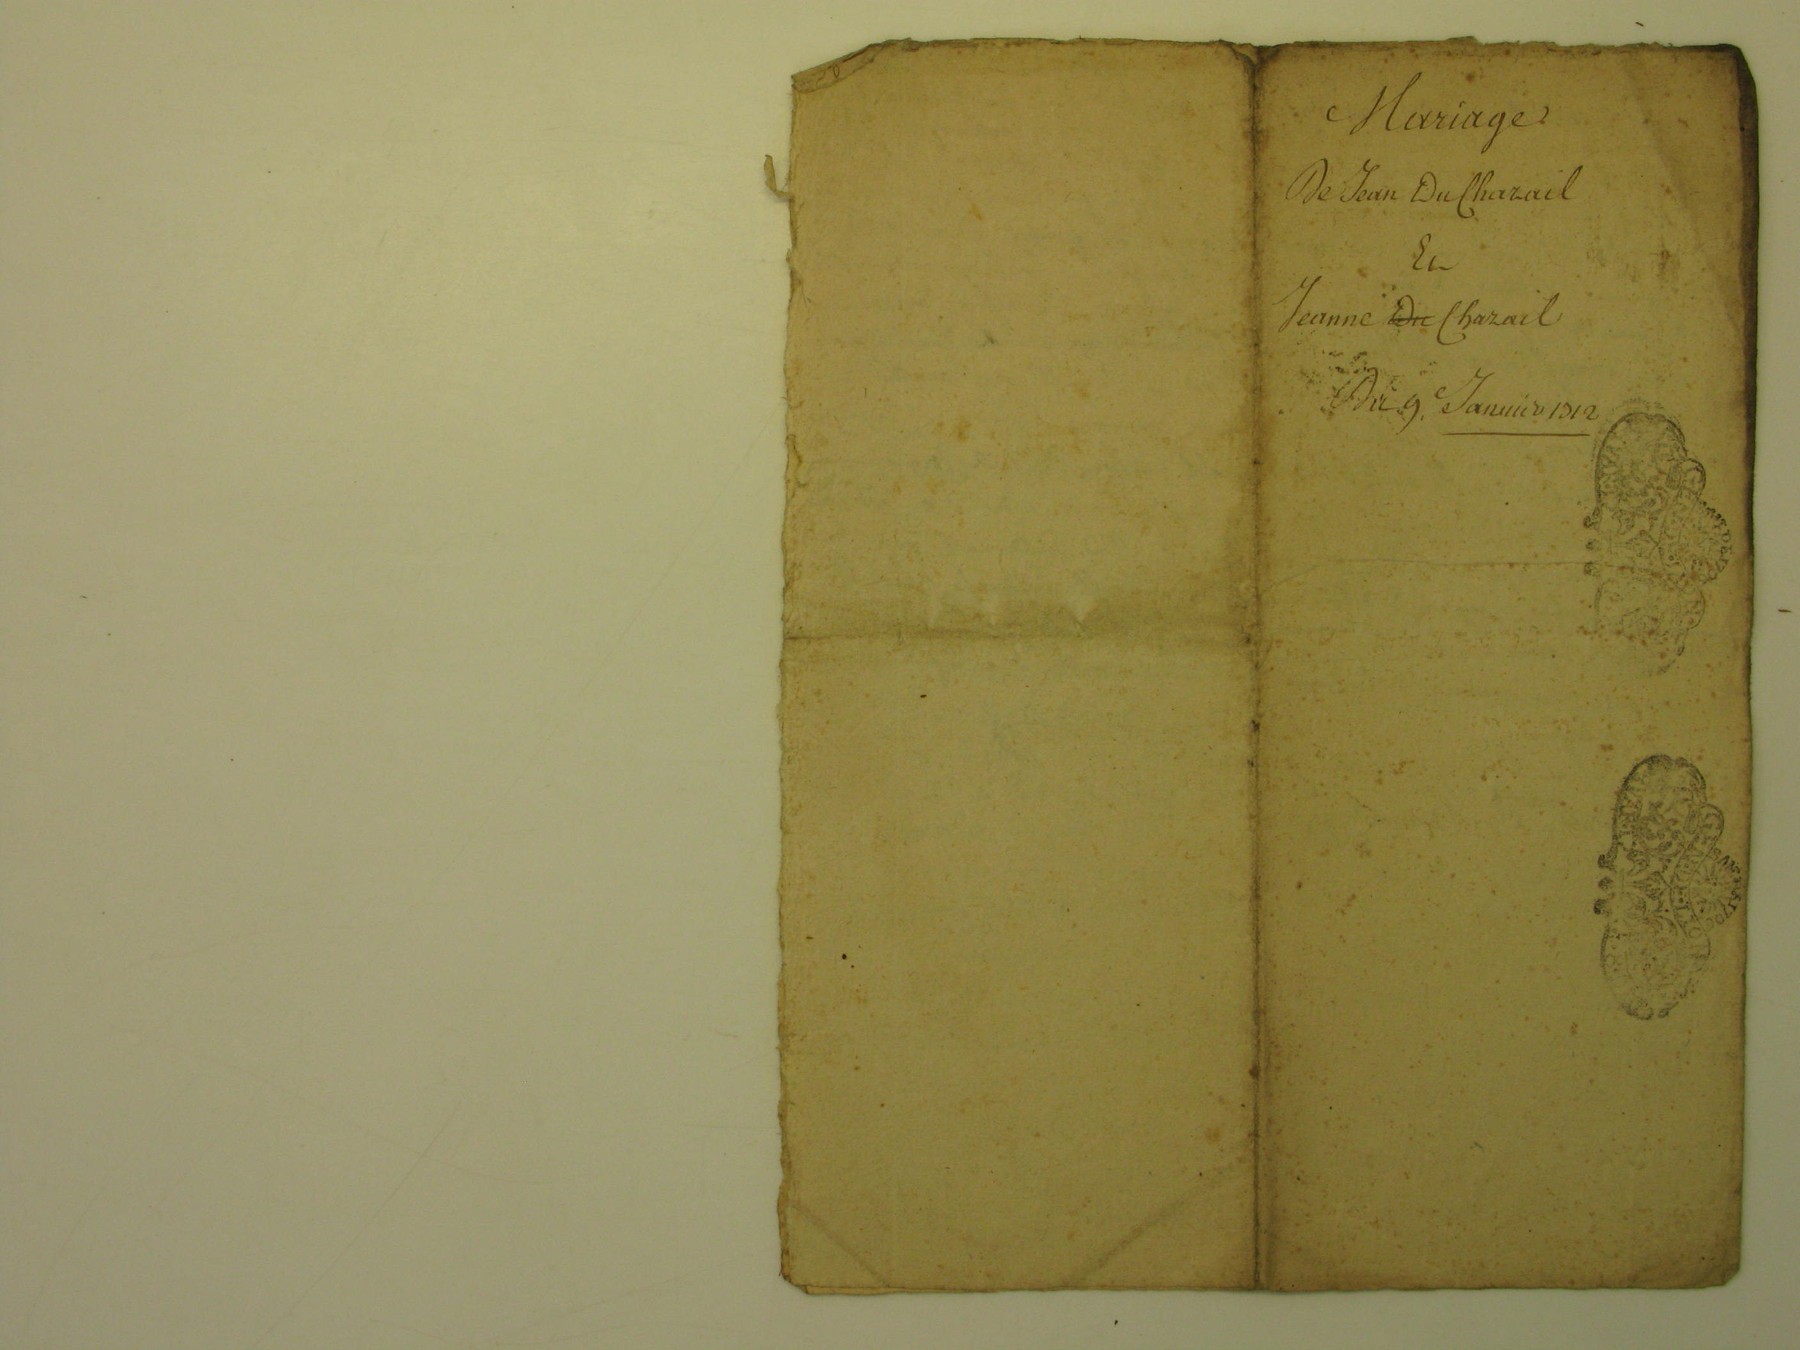 Mariage
De Jean Du Chazail
Et
Jeanne Du Chazail
Du 9.e Janvier 1312
GENERALITE